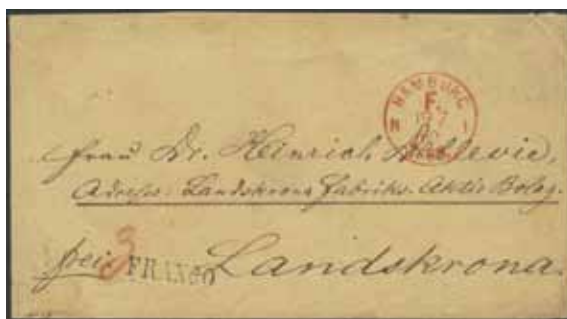 HAMBURG
F.
N 1
Frau Dr. Heinrich
Adresse: Landskrona Fabriks. Aktie Bolag.
frei 3 FRANCO Landskrona.